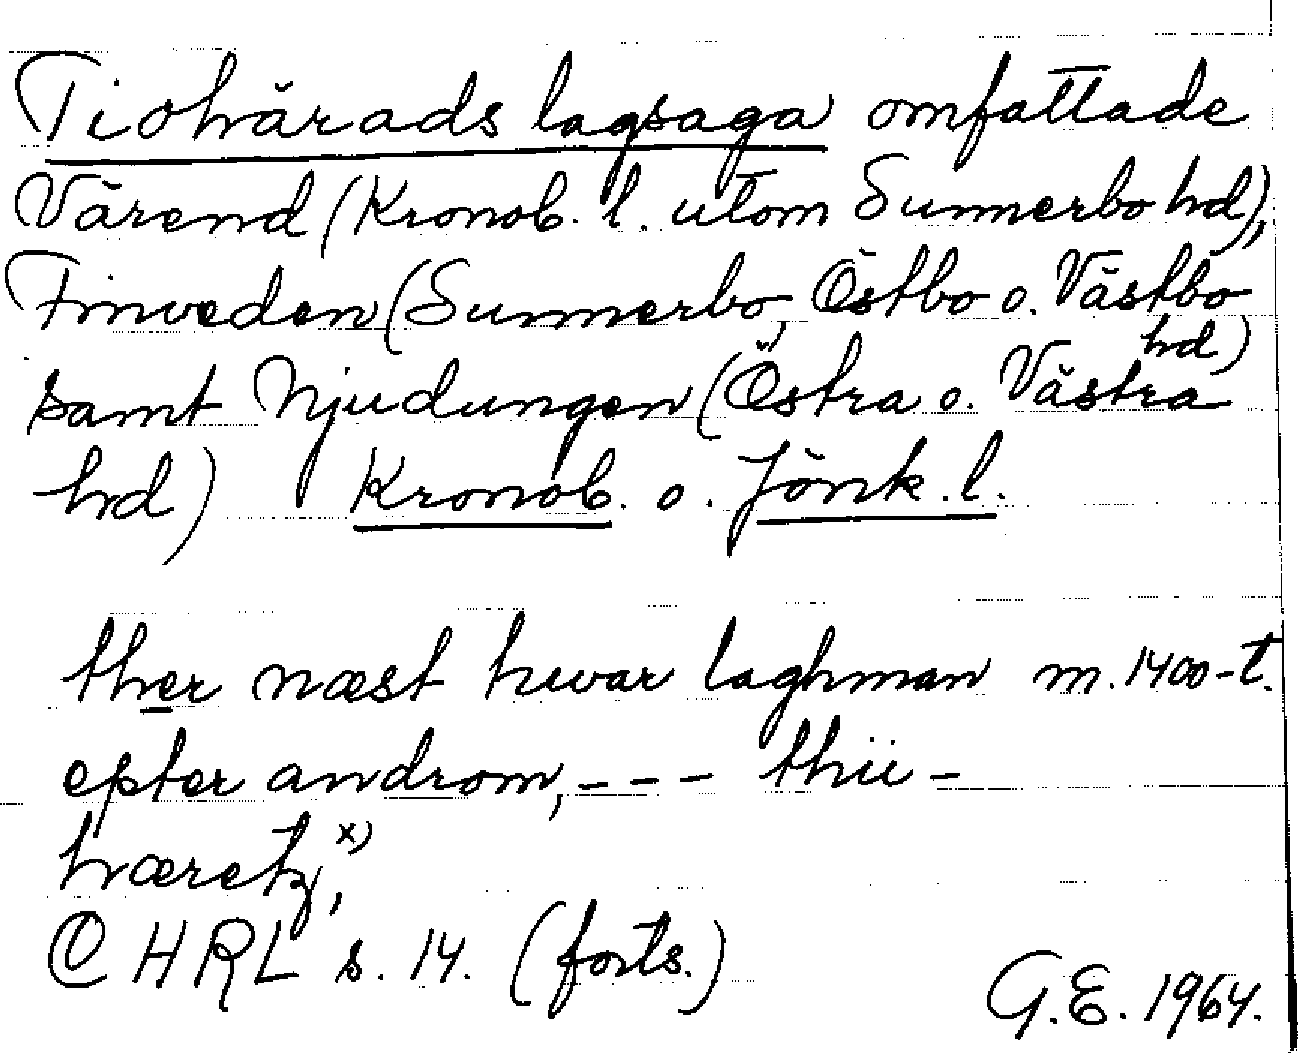 Tiohärads lagsaga omfattade
Värend (Kronob. l. utom Sunnerbo hd),
Finveden (Sunnerbo, Östbo o. Västbo
hd)
samt Njudungen (Östra o. Västra
hd) Kronob. o. Jönk. l.
ther næst hwar laghman m. 1400-t.
epter androm, --- thii-
hæretz, x)
CHRL s. 14. (forts.)
G.E. 1964.